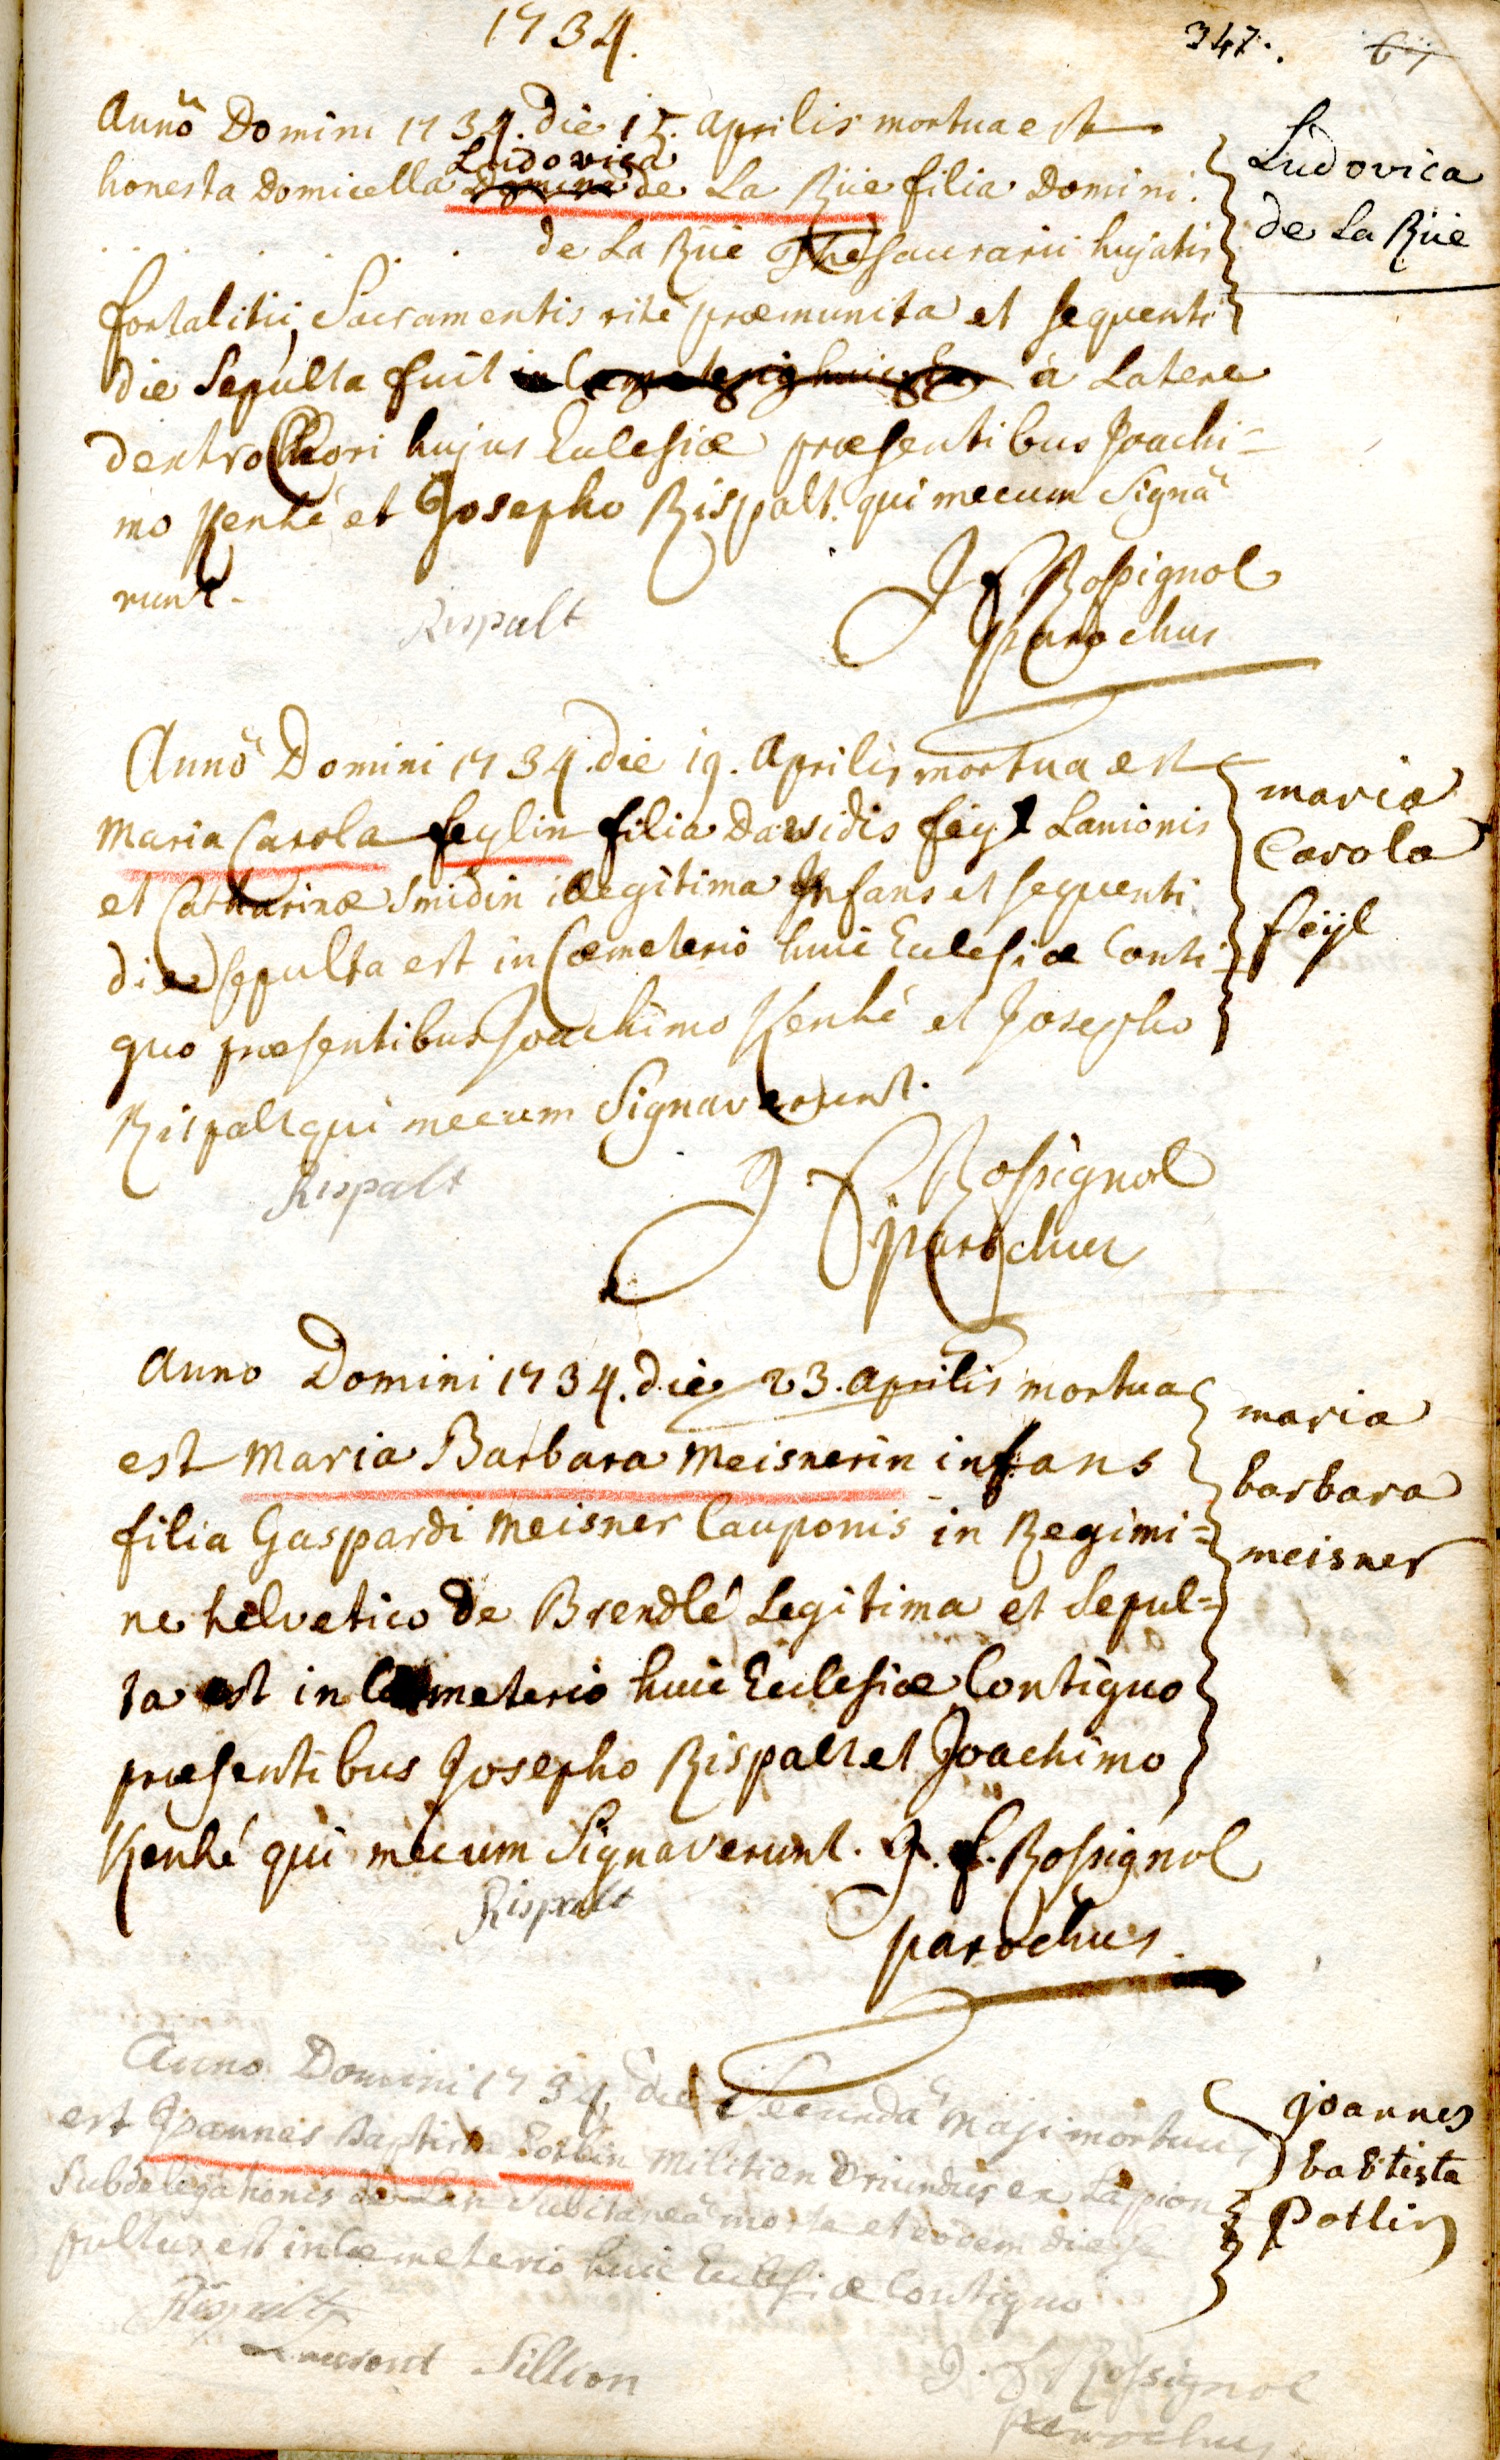 1734.
347.
Annô Domini 1734. die 15. aprilis mortua est
Ludovica
honesta Domicella Domina de La Rüe filia Domini
. . . . . . de La Rüe Thesaurarii hujatis
fortalitii, Sacramentis rite præmunita et sequenti
die Sepulta fuit à Latere
dextro Chori hujus Eclesiæ præsentibus Joachi=
mo Kenhé et Josepho Rispalt. qui mecum Signa
runt.
Ludovica
de La Rüe
Rispalt
J f Rossignol
parochus
Annô Domini 1734. die 19. Aprilis mortua est
Maria Carola feylin filia Davidis feyl Lanionis
et Catharinæ Smidin illegitima Infans et sequenti
die sepulta est in Cæmeterio huic Eclesiæ Conti-
guo præsentibus Joachimo Kenhé et Josepho
Rispalt qui mecum Signaverunt.
maria
Carola
feÿl
Rispalt
J. f. Rossignol
parochus
Anno Domini 1734. die 23. aprilis mortua
est Maria Barbara Meisnerin infans
filia Gaspardi Meisner Cauponis in Regimi=
ne helvetico de Brendlé Legitima et Sepul=
ta est in Cæmeterio huic Eclesiæ Contiguo
præsentibus Josepho Rispalt et Joachimo
Kenhé qui mecum Signaverunt. J. f. Rossignol
parochus.
maria
barbara
meisner
Rispalt
Anno Domini 1734. die Secundâ Maji mortuus
est Joannes Baptista Potlin Militien Oriundus ex Lappion
Subdelegationis de Lan Subitaneâ morte et eodem die se
pultus est in Cæmeterio huic Eclesiæ Contiguo
joannes
babtista
Potlin
Rispalt
Sillion
J. f Rossignol
parochus